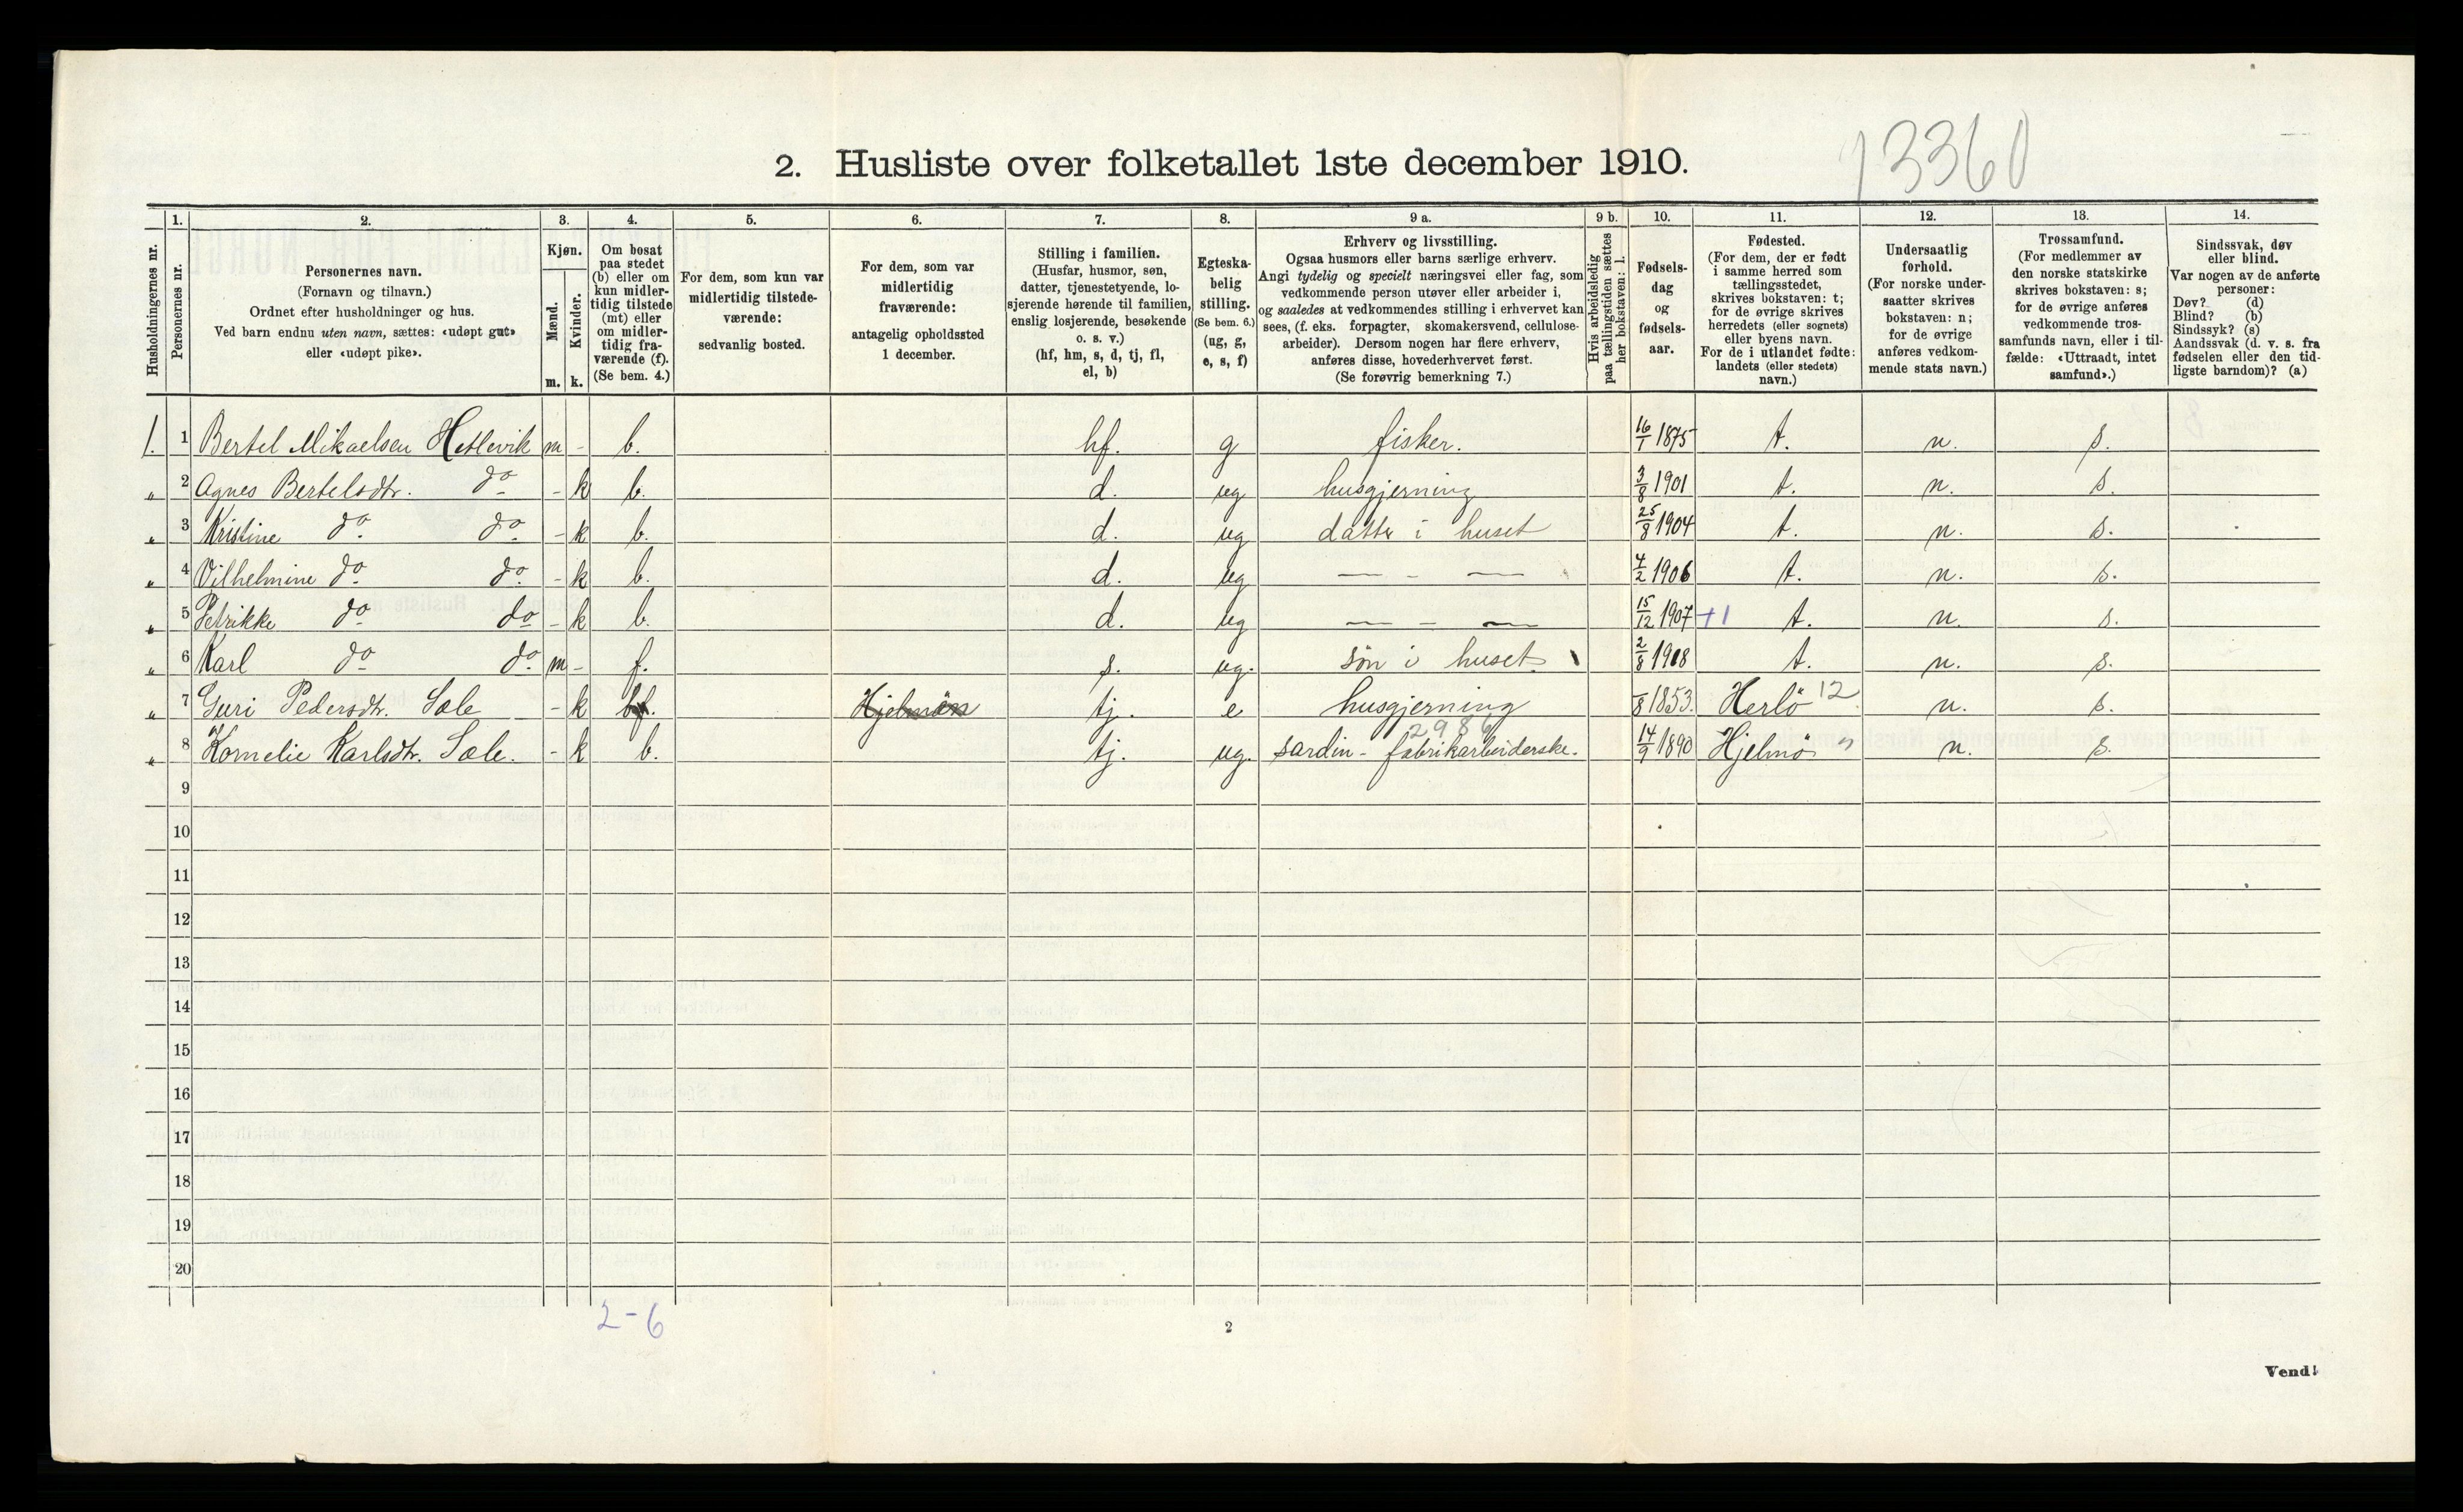 13360
2. Husliste over folketallet 1ste december 1910.
Husholdningernes nr.
1.
Personernes nr.
2.
Personernes navn.
(Fornavn og tilnavn.)
Ordnet efter husholdninger og hus.
Ved barn endnu uten navn, sættes: «udøpt gut»
eller «udøpt pike».
3.
Kjøn.
Mænd.
Kvinder.
m.
k.
4.
Om bosat
paa stedet
(b) eller om
kun midler-
tidig tilstede
(mt) eller
om midler-
tidig fra-
værende (f).
(Se bem. 4.)
5.
For dem, som kun var
midlertidig tilstede-
værende:
sedvanlig bosted.
6.
For dem, som var
midlertidig
fraværende:
antagelig opholdssted
1 december.
7.
Stilling i familien.
(Husfar, husmor, søn,
datter, tjenestetyende, lo-
sjerende hørende til familien,
enslig losjerende, besøkende
o. s. v.)
(hf, hm, s, d, tj, fl,
el, b)
8.
Egteska-
belig
stilling.
(Se bem. 6.)
(ug, g,
e, s, f)
9 a.
Erhverv og livsstilling.
Ogsaa husmors eller barns særlige erhverv.
Angi tydelig og specielt næringsvei eller fag, som
vedkommende person utøver eller arbeider i,
og saaledes at vedkommendes stilling i erhvervet kan
sees, (f. eks. forpagter, skomakersvend, cellulose-
arbeider). Dersom nogen har flere erhverv,
anføres disse, hovederhvervet først.
(Se forøvrig bemerkning 7.)
9 b.
Hvis arbeidsledig
paa tællingstiden sættes
her bokstaven: l.
10.
Fødsels-
dag
og
fødsels-
aar.
11.
Fødested.
(For dem, der er født
i samme herred som
tællingsstedet,
skrives bokstaven: t;
for de øvrige skrives
herredets (eller sognets)
eller byens navn.
For de i utlandet fødte:
landets (eller stedets)
navn.)
12.
Undersaatlig
forhold.
(For norske under-
saatter skrives
bokstaven: n;
for de øvrige
anføres vedkom-
mende stats navn.)
13.
Trossamfund.
(For medlemmer av
den norske statskirke
skrives bokstaven: s;
for de øvrige anføres
vedkommende tros-
samfunds navn, eller i til-
fælde: «Uttraadt, intet
samfund».)
14.
Sindssvak, døv
eller blind.
Var nogen av de anførte
personer:
Døv? (d)
Blind? (b)
Sindssyk? (s)
Aandssvak (d. v. s. fra
fødselen eller den tid-
ligste barndom)? (a)
1. 1 Bertel Mikaelsen Hetlevik m - b. hf. g fisker. 16/1 1875 t. n. s.
„ 2 Agnes Bertelsdtr. do - k b. d. ug husgjerning 3/8 1901 t. n. s.
„ 3 Kristine do do - k b. d. ug datter i huset 25/8 1904 t. n. s.
„ 4 Vilhelmine do do - k b. d. ug — - — 4/2 1906 t. n. s.
„ 5 Petrikke do do - k b. d. ug — - — 15/12 1907 +1 t. n. s.
„ 6 Karl do do m - f. s. ug. søn i huset 2/8 1908 t. n. s.
„ 7 Guri Pedersdtr. Sæle - k b. Hjelmöen tj. e husgjerning /8 1853. Herlö 12 n. s.
2986
„ 8 Kornelie Karlsdtr. Sæle. - k b. tj. ug. sardin-fabrikarbeiderske. 14/9 1890 Hjelmö n. s.
9
10
11
12
13
14
15
16
17
18
19
20
2-6
2
Vend!